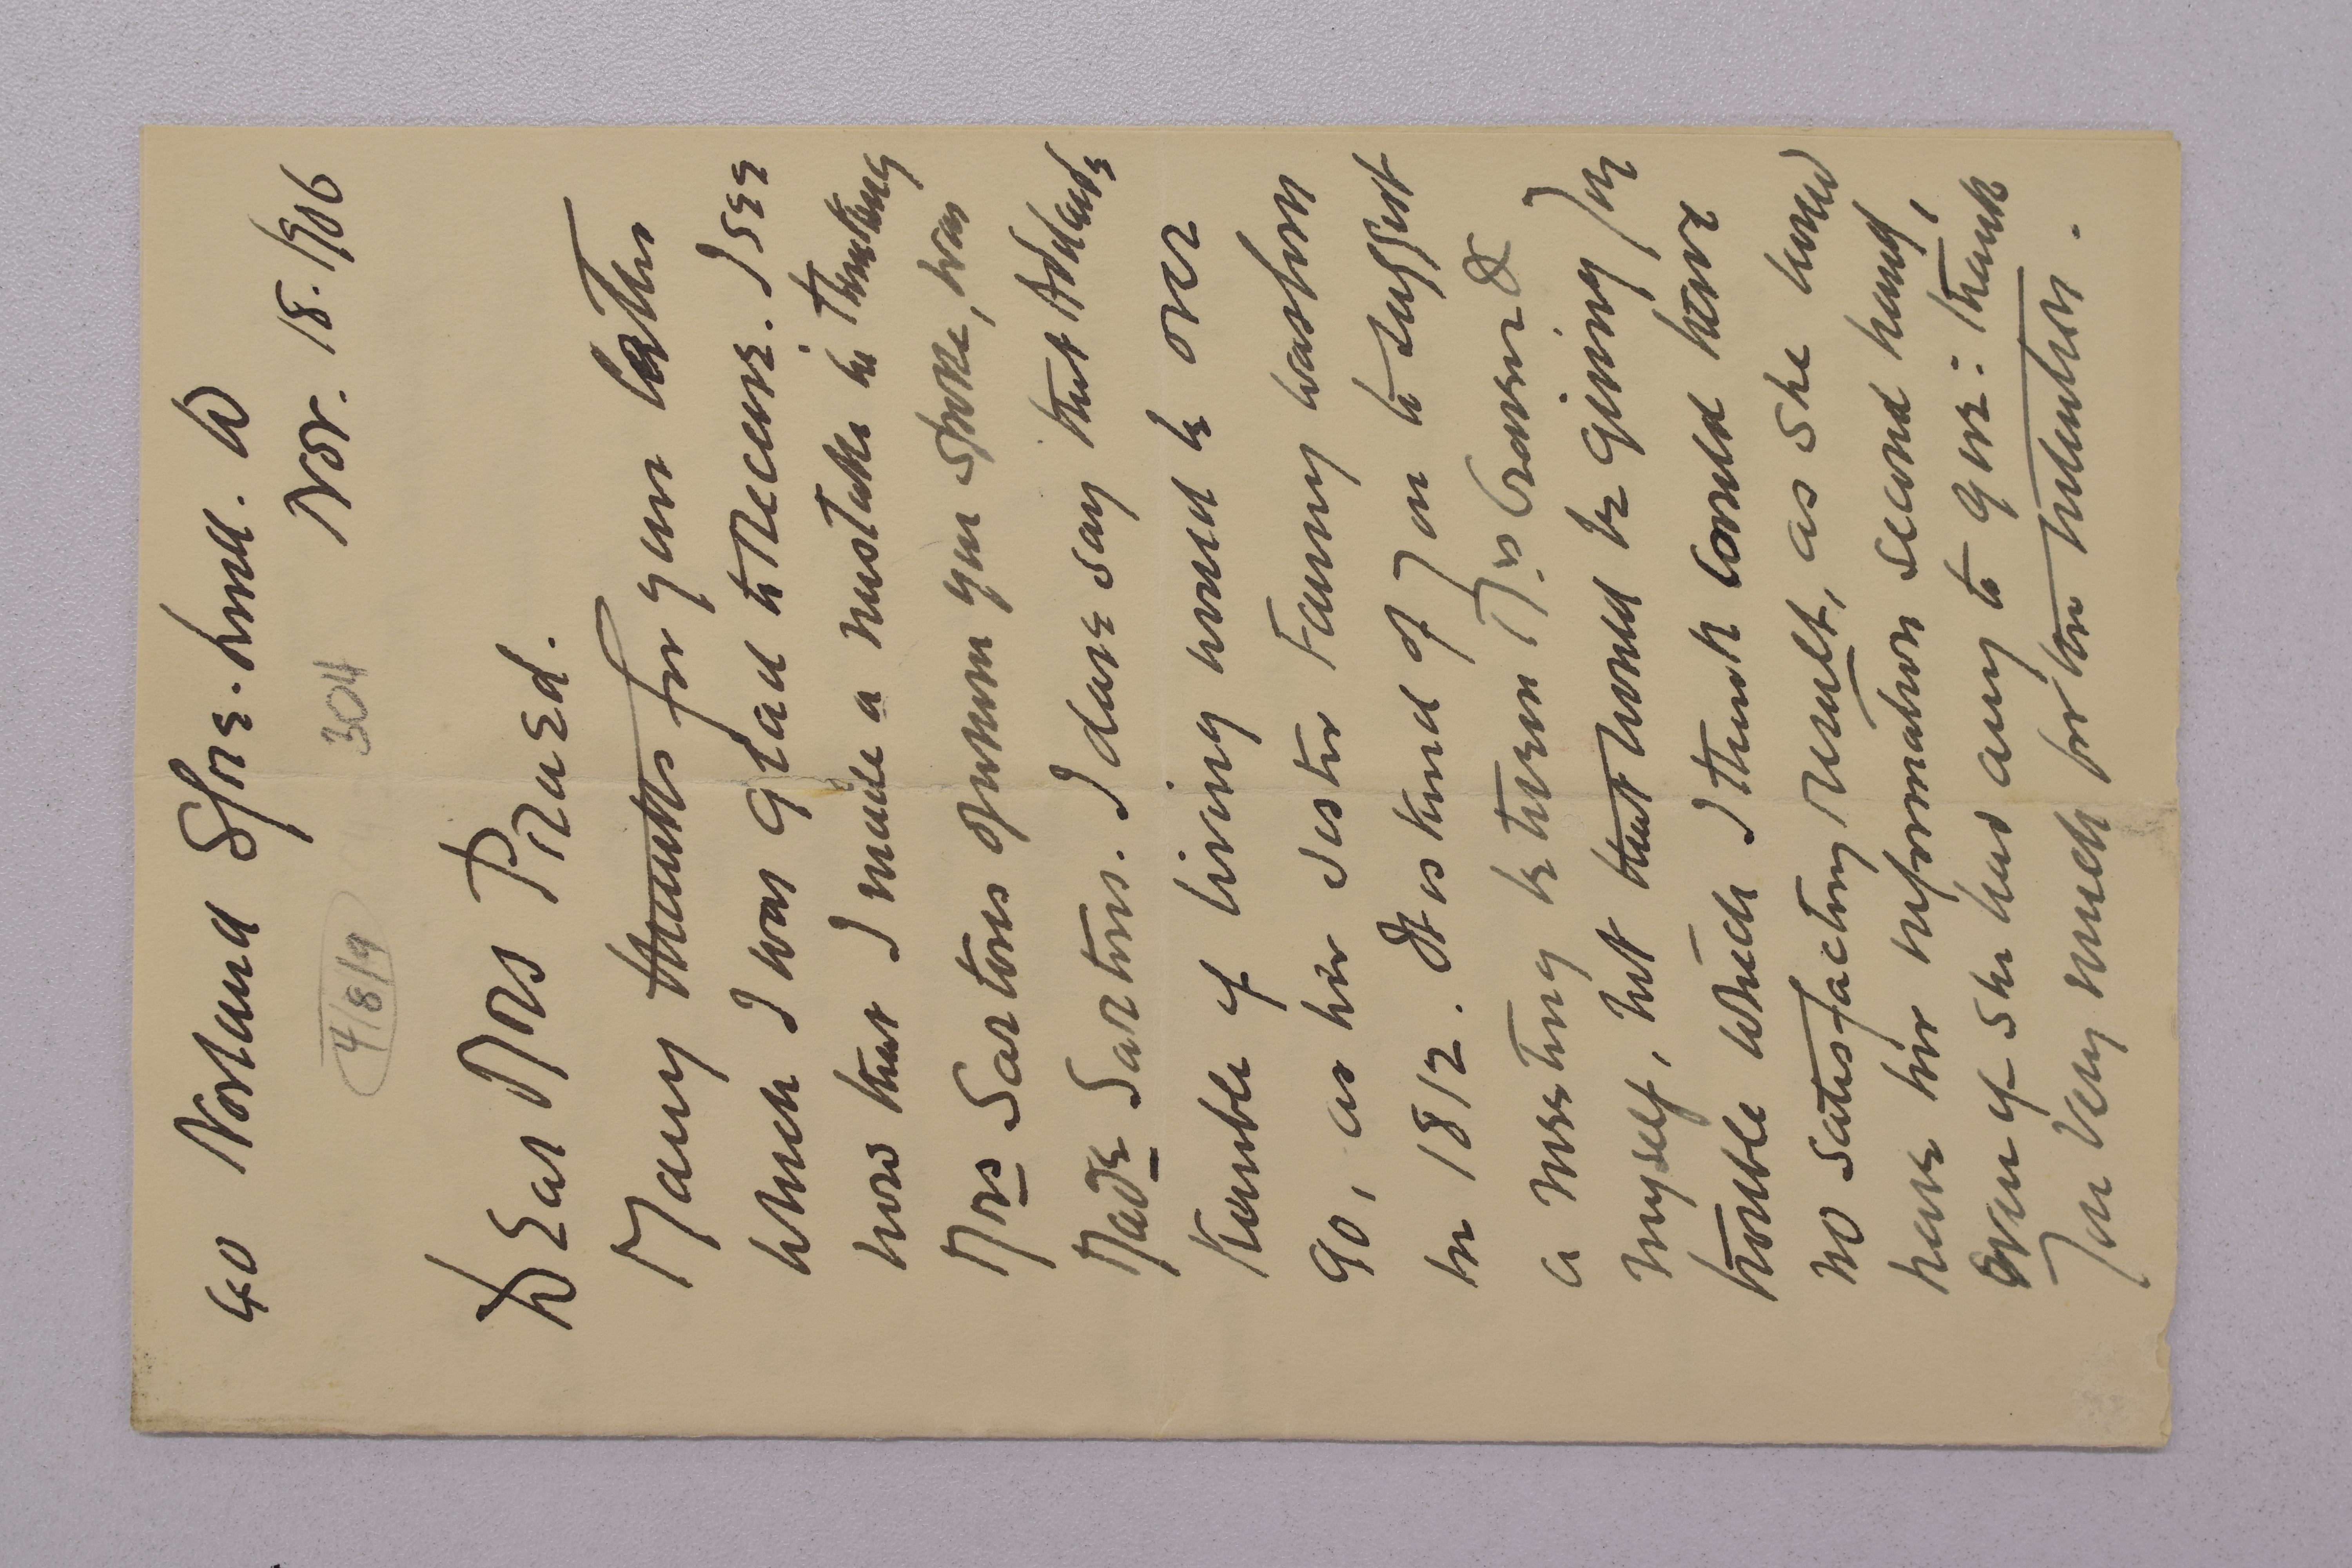 40 Norland Sqre. Hill. W
Nov. 18. 1906
4/8/9 304
Dear Mrs Praed.
Many thanks for your letter
which I was glad to receive. I see
now that I made a mistake in thinking
Mrs Sartoris of whom you spoke, was
Made Sartoris. I dare say that Adelaide
Kemble if living would be over
90, as her sister Fanny was born
in 1812. It is kind of you to suggest
a meeting between Mrs &
myself, but that would be giving you
trouble which I think could have
no satisfactory result, as she would
have her information second hand,
even if she had any to give: thank
you very much for the intention.